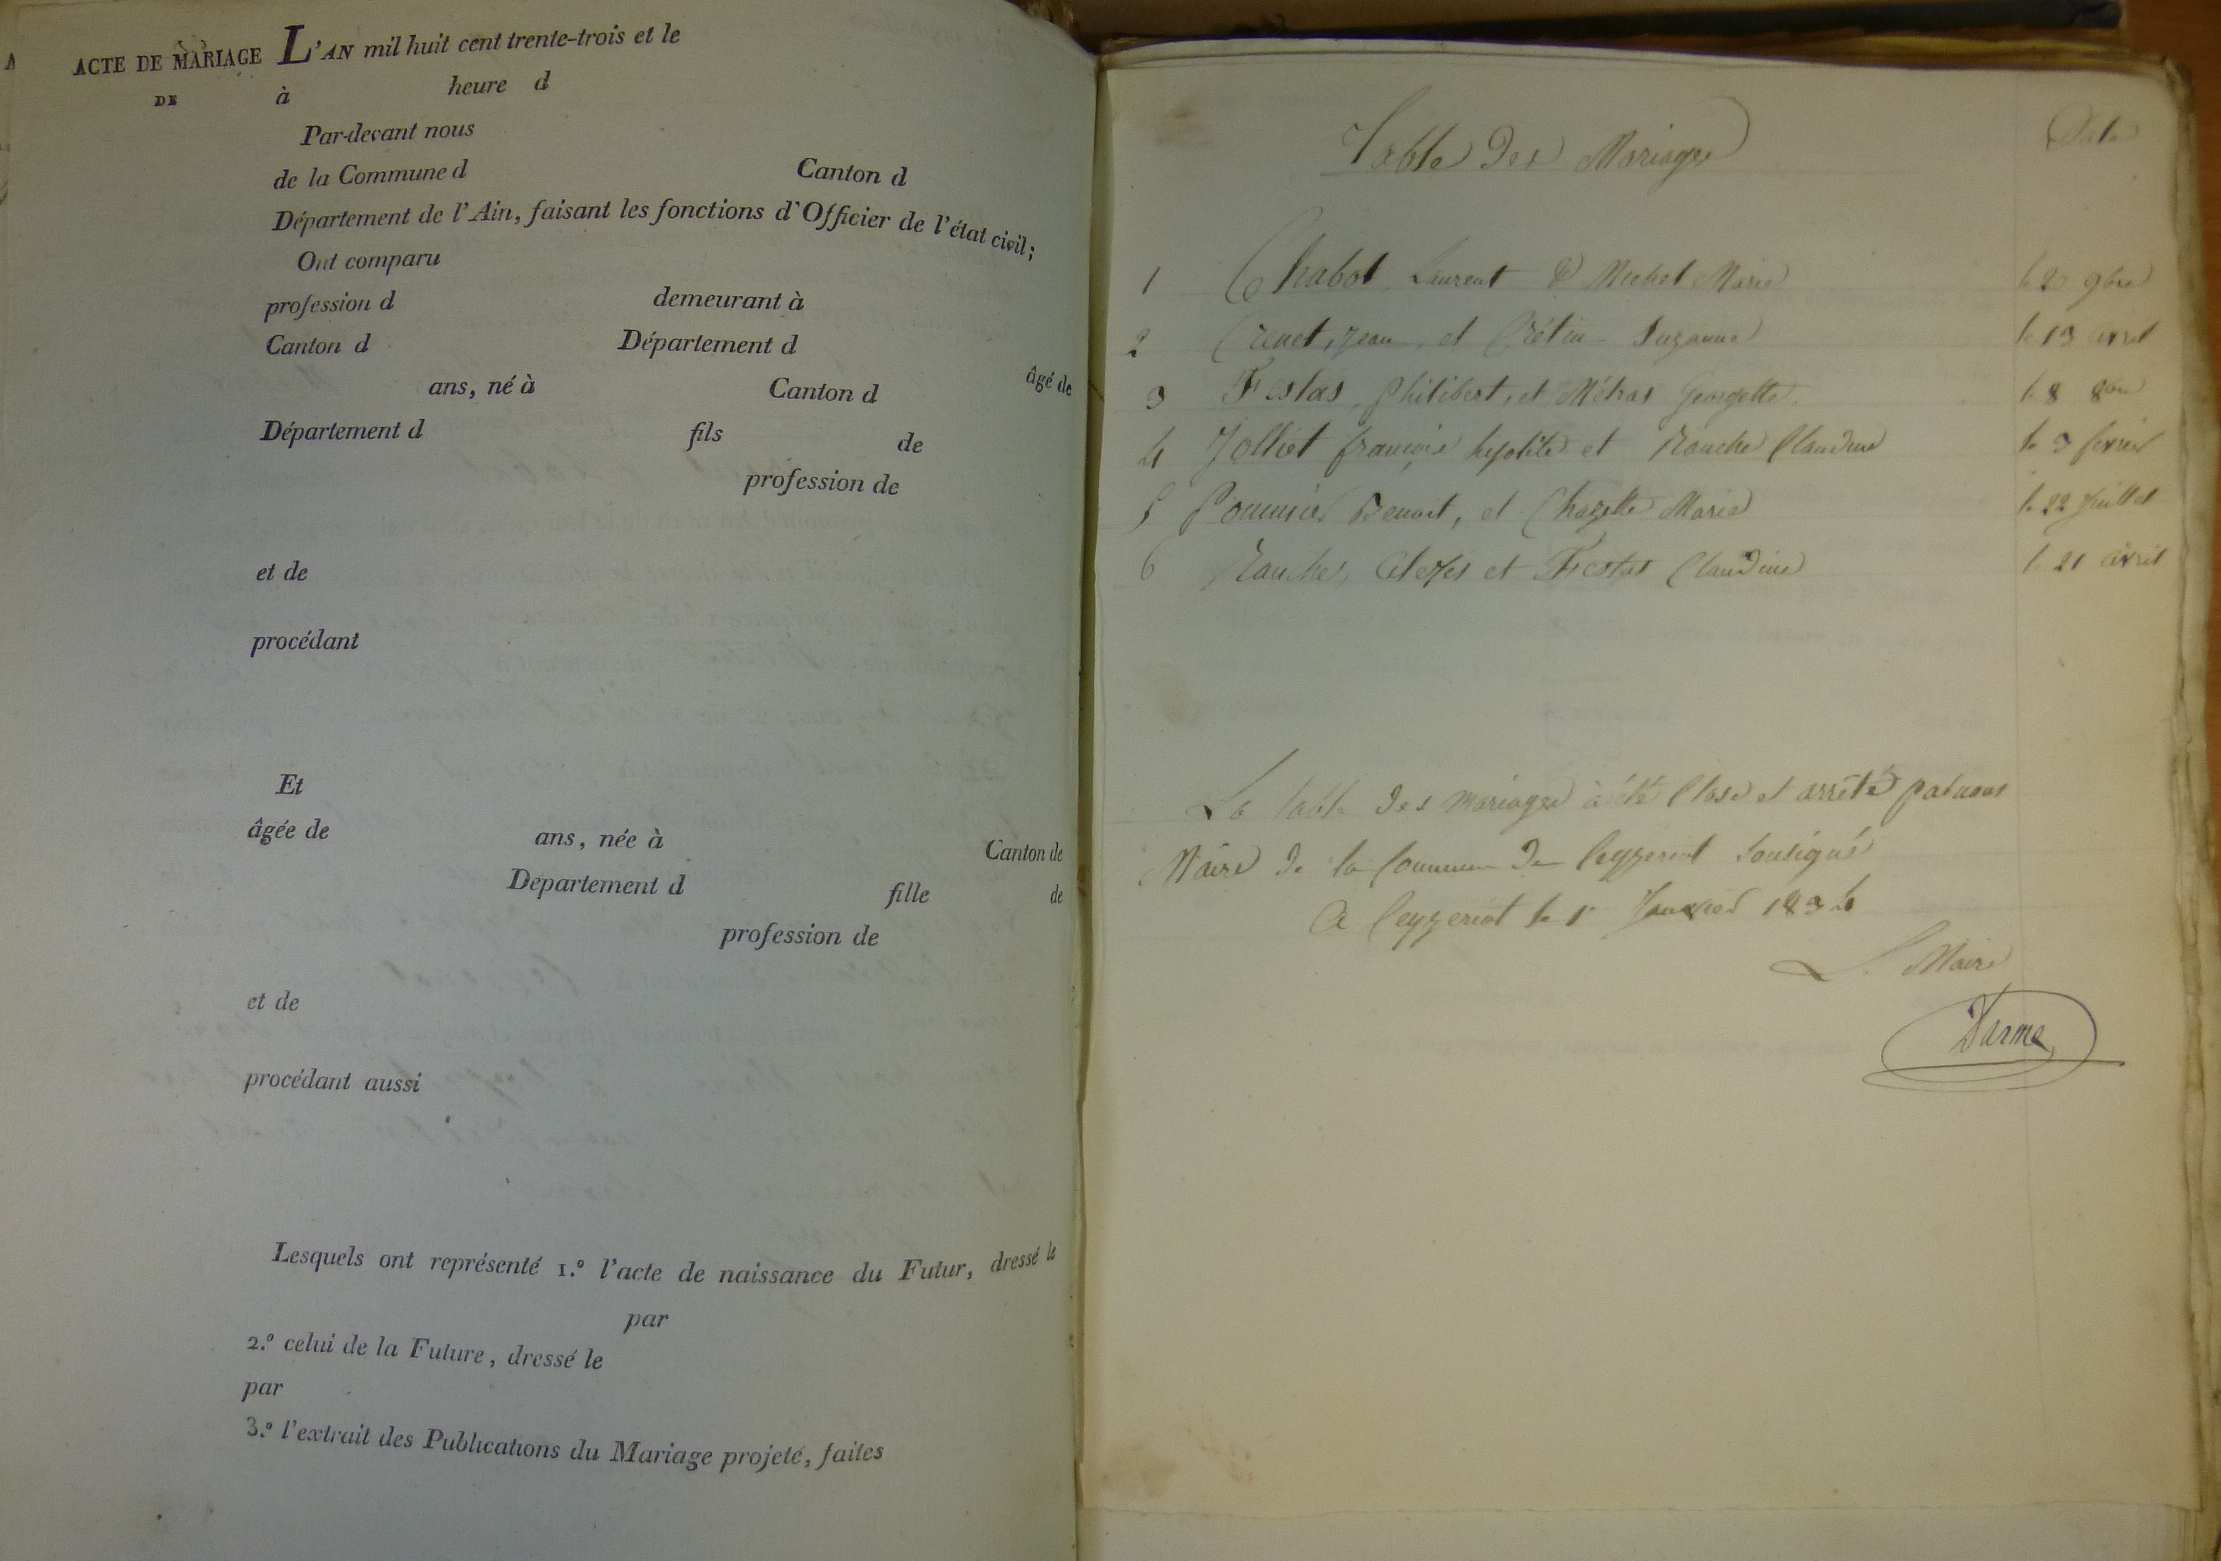 ACTE DE MARIAGE
DE
L'AN mil huit cent trente-trois et le
à heure d
Par-devant nous
de la Commune d Canton d
Département de l'Ain, faisant les fonctions d'Officier de l'état civil;
Ont comparu
profession d demeurant à
Canton d Département d
âgé de
ans, né à Canton d
Département d fils de
profession de
et de
procédant
Et
âgée de ans, née à Canton de
Departement d fille de
profession de
et de
procédant aussi
Lesquels ont représenté 1.º l'acte de naissance du Futur, dressé le
par
2.º celui de la Future, dressé le
par
3.º l'extrait des Publications du Mariage projeté, faites
Table Des Mariages Date
1 Chabot Laurent & Michel Marie le 20 9bre
2 Cruet, Jean et Crétin Suzanne le 13 avril
3 Festas, Philibert, et Métras Georgette le 8 8bre
4 Jolliet françois hypolite et Rouche Claudine le 3 fevrier
5 Pommier Benoit, et Chazelle Marie le 22 Juillet
6 Alexes et Festas Claudine le 21 avril
La table Des Mariages à été Close et arrêté par nous
Maire De la Commune De Ceyzeriat Sousigné
A Ceyzeriat le 1r Janvier 1834
Le Maire
Darme